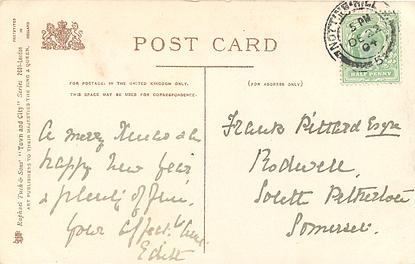 POST CARD
FOR POSTAGE IN THE UNITED KINGDOM ONLY.
THIS SPACE MAY BE USED FOR CORRESPONDENCE.
(FOR ADDRESS ONLY)
A merry Xmas &
happy New Year
& plenty of fun,
your affect.
Edith
Frank Pittard Esqre
Rodwell,
South Petherton
Somerset.
NOTTING HILL
PM
HALF PENNY
Raphael Tuck & Sons' "Town and City" Series
ART PUBLISHERS TO THEIR MAJESTIES THE KING & QUEEN.